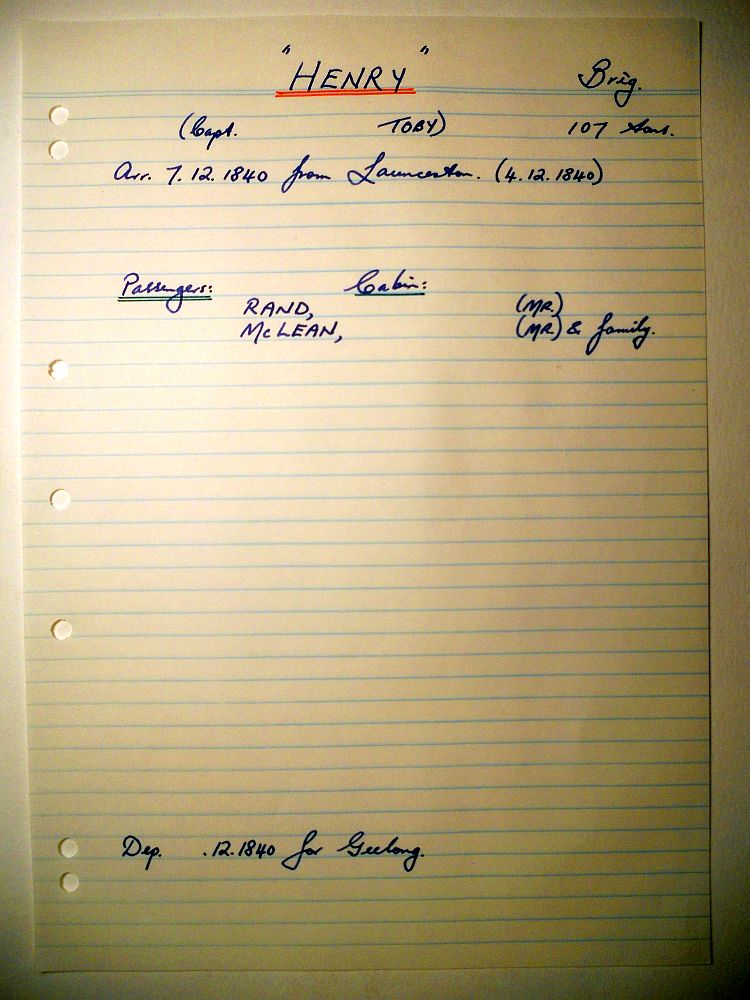 "HENRY" Brig.
(Capt. TOBY) 107 tons.
Arr. 7.12.1840 from Launceston. (4.12.1840)
Passengers: Cabin:
RAND, (MR.)
McLEAN, (MR.) & family.
Dep. .12.1840 for Geelong.